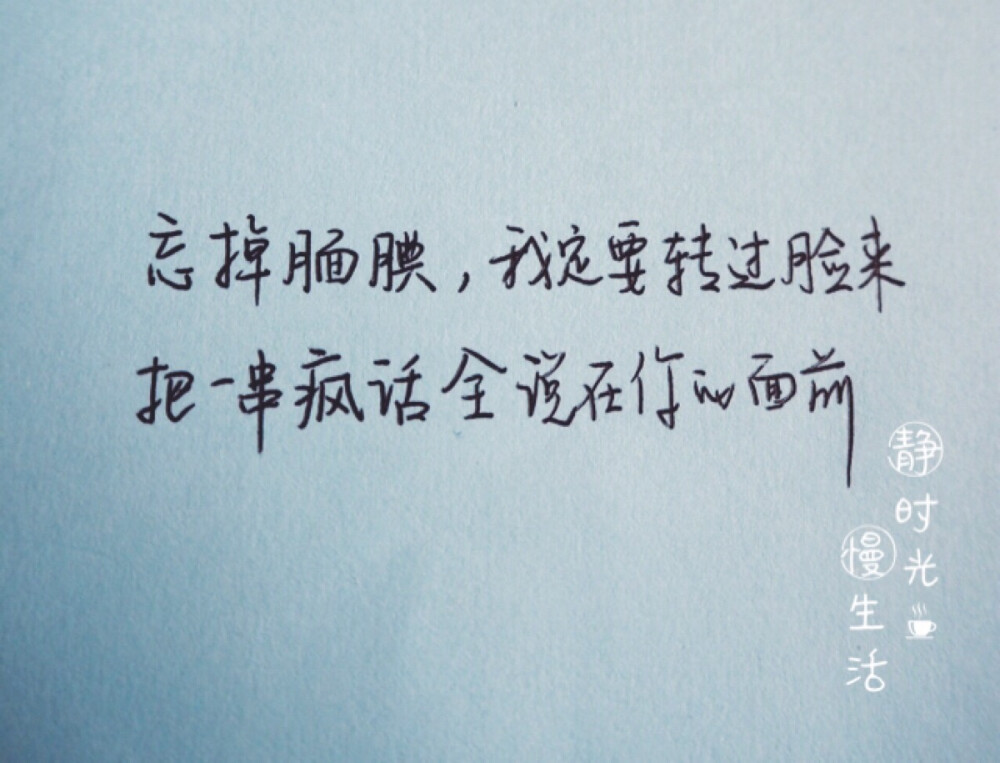 忘掉腼腆，我定要转过脸来
把一串疯话全说在你的面前
静时光
慢生活